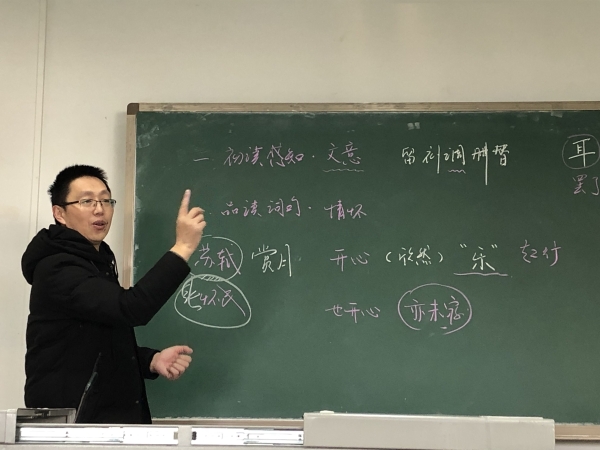 一 初读感知·文意 留补调删替 耳
罢了
品读词句·情怀
苏轼 赏月 开心（欣然）“乐” 起行
张怀民 也开心 亦未寝